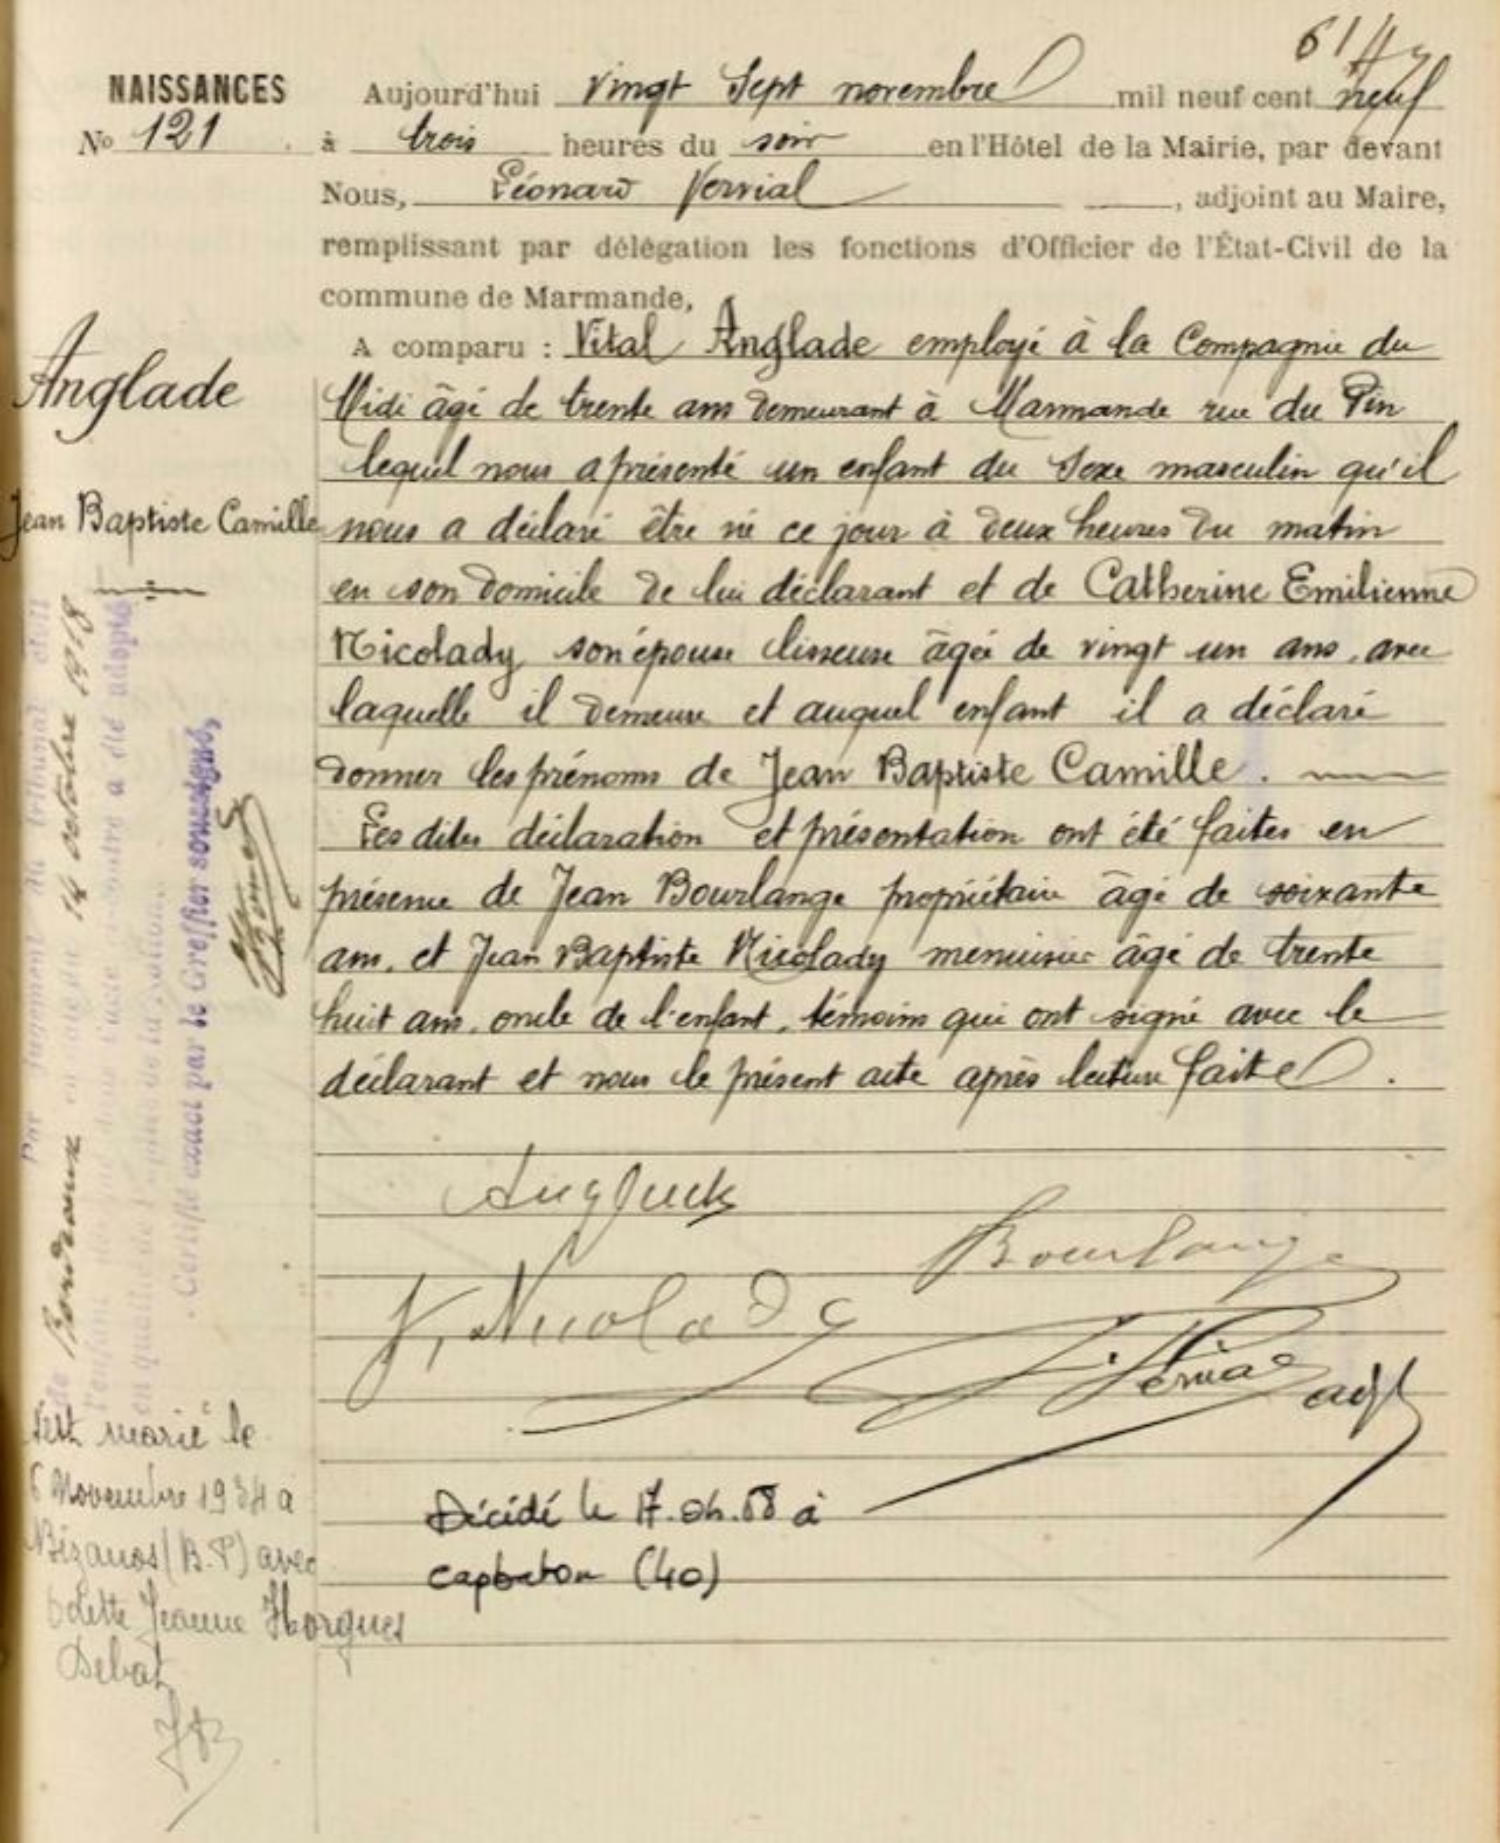 61
NAISSANCES
No 121
Aujourd'hui vingt sept novembre mil neuf cent neuf
à trois heures du soir en l'Hôtel de la Mairie, par devant
Nous, Léonard Vervial, adjoint au Maire,
remplissant par délégation les fonctions d'Officier de l'État-Civil de la
commune de Marmande,
A comparu : Vital Anglade employé à la Compagnie du
Midi âgé de trente ans demeurant à Marmande rue du Pin
lequel nous a présenté un enfant du sexe masculin qu'il
nous a déclaré être né ce jour à deux heures du matin
en son domicile de lui déclarant et de Catherine Emilienne
Nicolady son épouse lisseuse âgée de vingt un ans, avec
laquelle il demeure et auquel enfant il a déclaré
donner les prénoms de Jean Baptiste Camille.
Les dites déclaration et présentation ont été faites en
présence de Jean Bourlange propriétaire âgé de soixante
ans, et Jean Baptiste Nicolady menuisier âgé de trente
huit ans, oncle de l'enfant, témoins qui ont signé avec le
déclarant et nous le présent acte après lecture faite.
Bourlange
J. Nicolady
adjt
Anglade
Jean Baptiste Camille
Par jugement du tribunal civil
de Bordeaux en date du 14 octobre 1918
l'enfant
en qualité de pupille de la Nation.
Certifié exact par le Greffier soussigné,
S'est marié le
6 Novembre 1934 à
Bizanos (B.P) avec
Odette Jeanne Horgues
Debat
Décédé le 17.04.68 à
Capbreton (40)